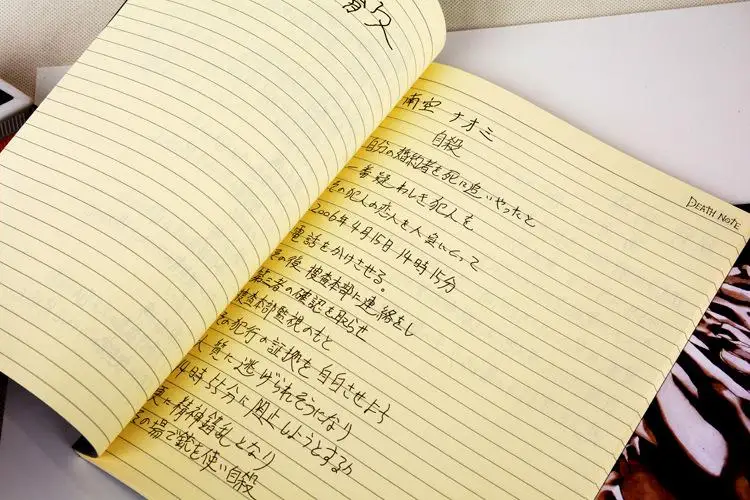 南空 ナオミ
自殺
自分の婚約者を死に追いやったと
一番疑わしき犯人を
その犯人の恋人を人質にとって
2006年4月15日14時15分
電話をかけさせる。
その後、捜査本部に連絡をし
第三者の確認を取らせ
捜査本部監視のもと
その犯行の証拠を自白させよう
人質に逃げられそうになり
4時55分に阻止しようとするが
更に精神錯乱となり
その場で銃を使い自殺
DEATH NOTE